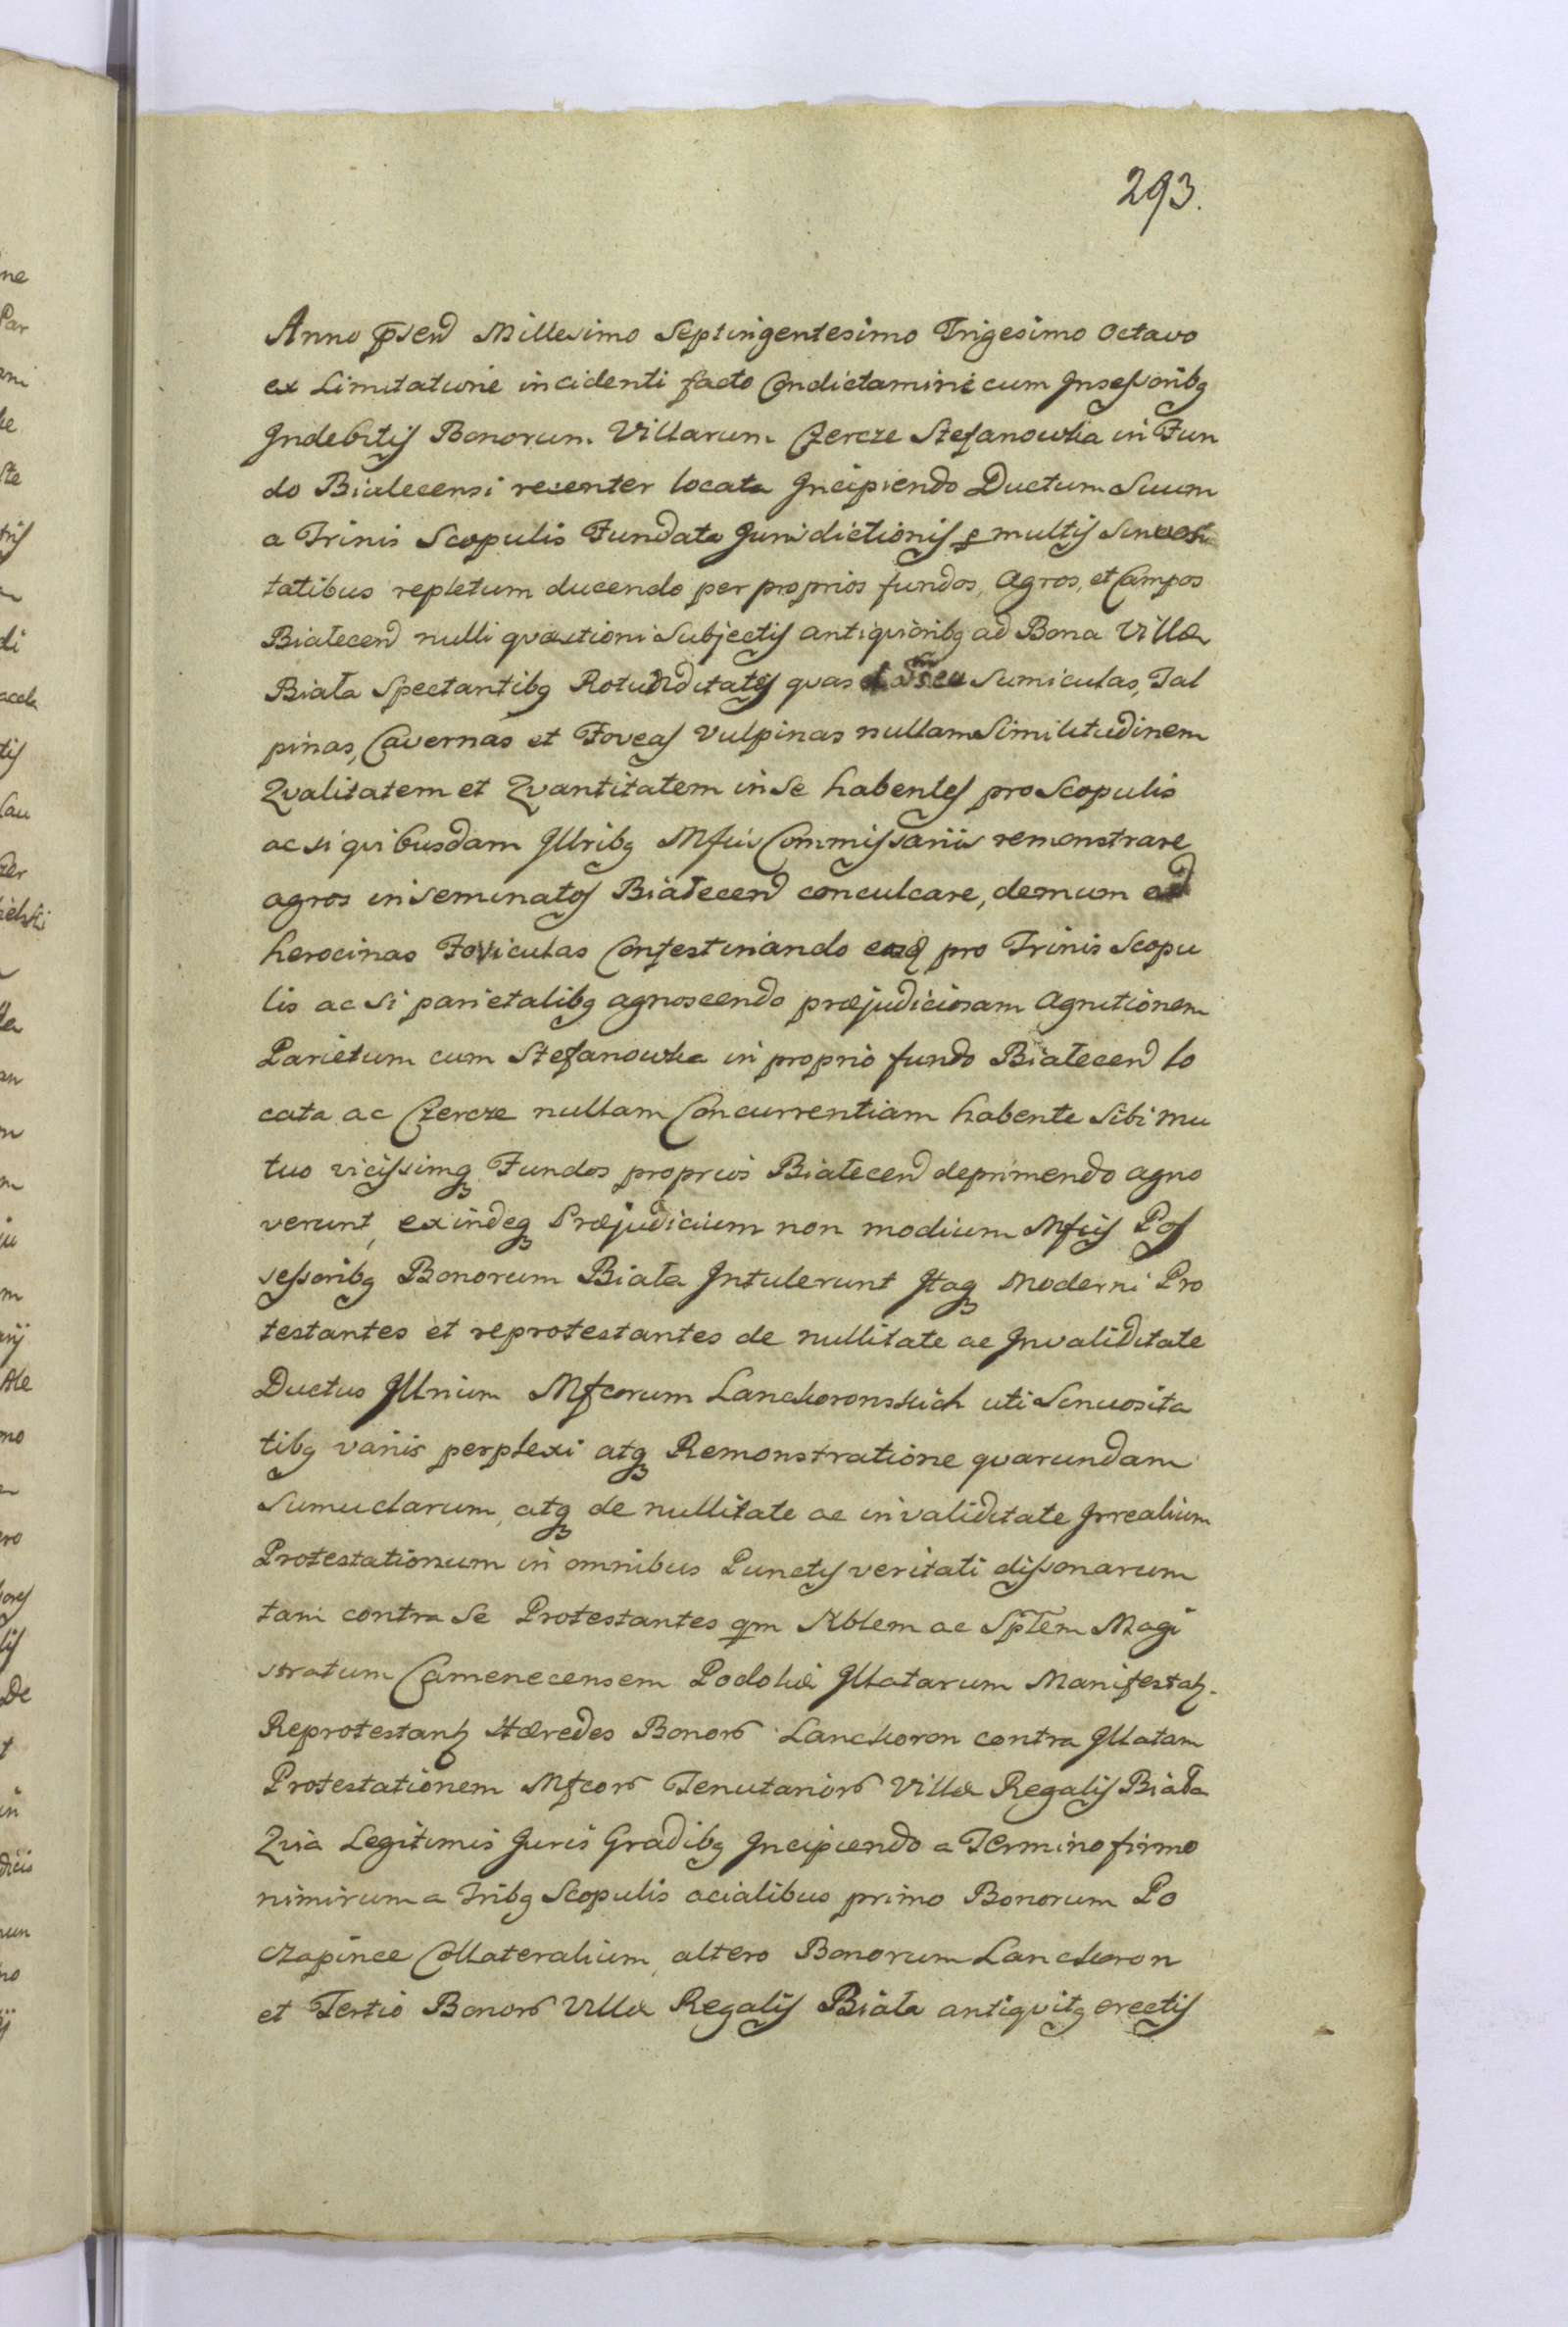 293.
Anno psen Millesimo Septingentesimo Trigesimo Octavo
ex Limitatione incidenti facto Condictamine cum Insessoribq
Indebitis Bonorum Villarum Czercze Stefanowka in Fun
do Bialecensi recenter locata Incipiendo Ductum Suum
a Trinis Scopulis Fundata Jurisdictionis p multis Sinuosi
tatibus repletum ducendo per proprios fundos, Agros, et Campos
Białecen nulli quæstioni Subjectis antiquioribq ad Bona Villæ
Biała Spectantibq Rotunditates quas seu Sumiculas, Tal
pinas, Cavernas et Foveas Vulpinas nullam Similitudinem
Qvalitatem et Qvantitatem in se habentes pro Scopulis
ac si qvibusdam Illribq Mfcis Commissariis remonstrare
agros inseminatos Białecen conculcare, demum ad
herocinas Foviculas Confestinando easq pro Trinis Scopu
lis ac si parietalibq agnoscendo præjudiciosam Agnitionem
Parietum cum Stefanowka in proprio fundo Białecen lo
cata ac Czercze nullam Concurrentiam habente Sibi mu
tuo vicissimq Fundos proprios Białecen deprimendo agno
verunt, exindeq Præjudicium non modicum Mfcis Pos
sessoribq Bonorum Biała Intulerunt Itaq Moderni Pro
testantes et reprotestantes de nullitate ac Invaliditate
Ductus Illrium Mfcorum Lanckoronskich uti Sinuosita
tibq variis perplexi atq Remonstratione qvarundam
Sumuclarum, atq de nullitate ac invaliditate Irrealium
Protestationum in omnibus Punctis veritati dissonarum
tam contra Se Protestantes qm Nblem ac Spblem Magi
stratum Camenecensem Podoliæ Illatarum Manifestaħ.
Reprotestanħ Hæredes Bonor Lanckoron contra Illatam
Protestationem Mfcor Tenutarior Villæ Regalis Biała
Qvia Legitimis Juris Gradibq Incipiendo a Termino firmo
nimirum a Tribq Scopulis acialibus primo Bonorum Po
czapince Collateralium, altero Bonorum Lanckoron
et Tertio Bonor Villæ Regalis Biała antiqvitq erectis